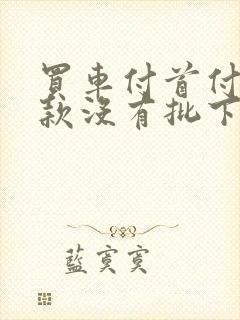 買車付首付
款沒有批下
藍寞寞